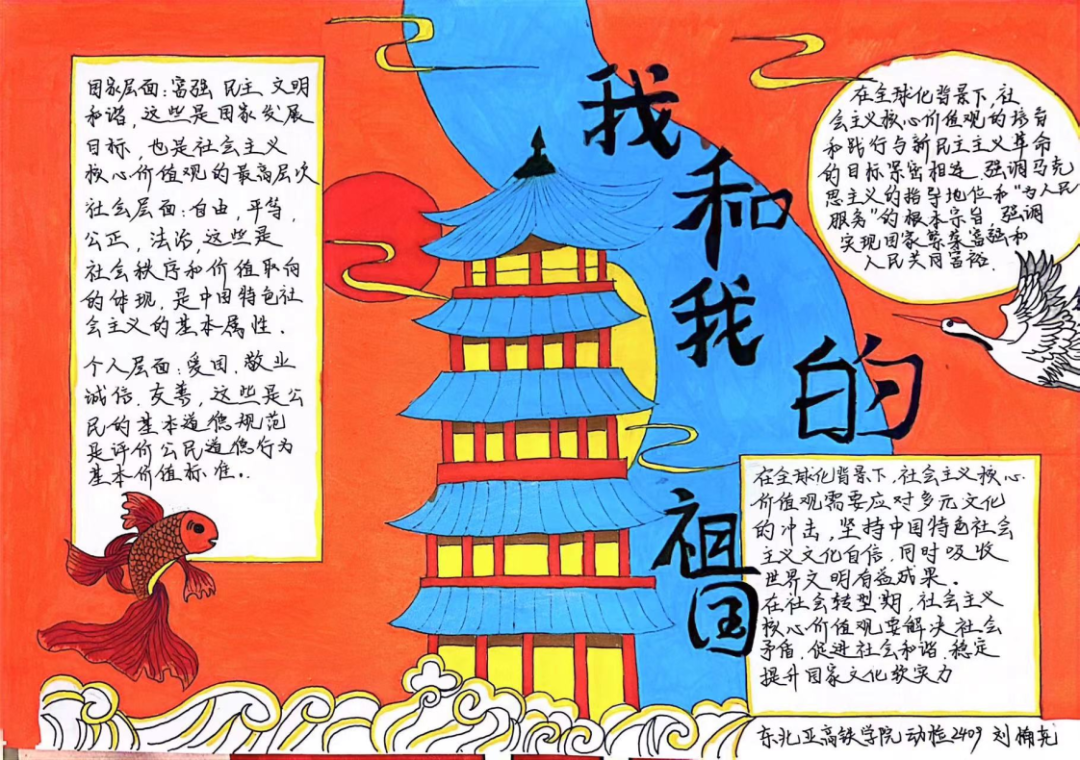 我和我的祖国
国家层面:富强 民主 文明
和谐,这些是国家发展
目标,也是社会主义
核心价值观的最高层次
社会层面:自由,平等,
公正,法治,这些是
社会秩序和价值取向
的体现,是中国特色社
会主义的基本属性.
个人层面:爱国,敬业
诚信.友善,这些是公
民的基本道德规范
是评价公民道德行为
基本价值标准..
在全球化背景下,社
会主义核心价值观的培育
和践行与新民主主义革命
的目标紧密相连.强调马克
思主义的指导地位和"为人民
服务"的根本宗旨,强调
实现国家繁荣富强和
人民共同富裕.
在全球化背景下,社会主义核心.
价值观需要应对多元文化
的冲击,坚持中国特色社会
主义文化自信.同时吸收
世界文明有益成果。
在社会转型期,社会主义
核心价值观要解决社会
矛盾.促进社会和谐.稳定
提升国家文化软实力
东北亚高铁学院动检2409 刘